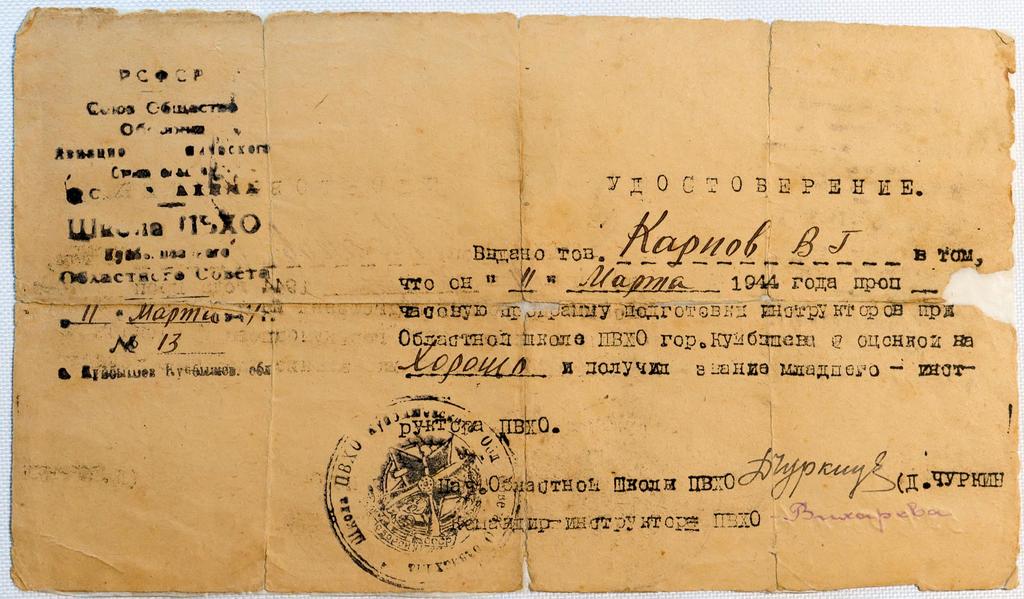 РСФСР
Союз Общества
Обороны
Авиацио
Школа ПВХО
Областного Совета
"11" Марта
№ 13
г. Куйбышев Куйбышев. обл
УДОСТОВЕРЕНИЕ.
Выдано тов. Карпов В Г в том,
что он "11" Марта 1944 года прош
часовую программу подготовки инструкторов при
Областной школе ПВХО гор.Куйбышева с оценкой на
Хорошо и получил звание младшего - инст-
руктора ПВХО.
Нач.Областной Школы ПВХО Д Чуркин (Д.ЧУРКИН
Командир-инструктора ПВХО - Вихарева
Школа ПВХО Куйбышевск Обл